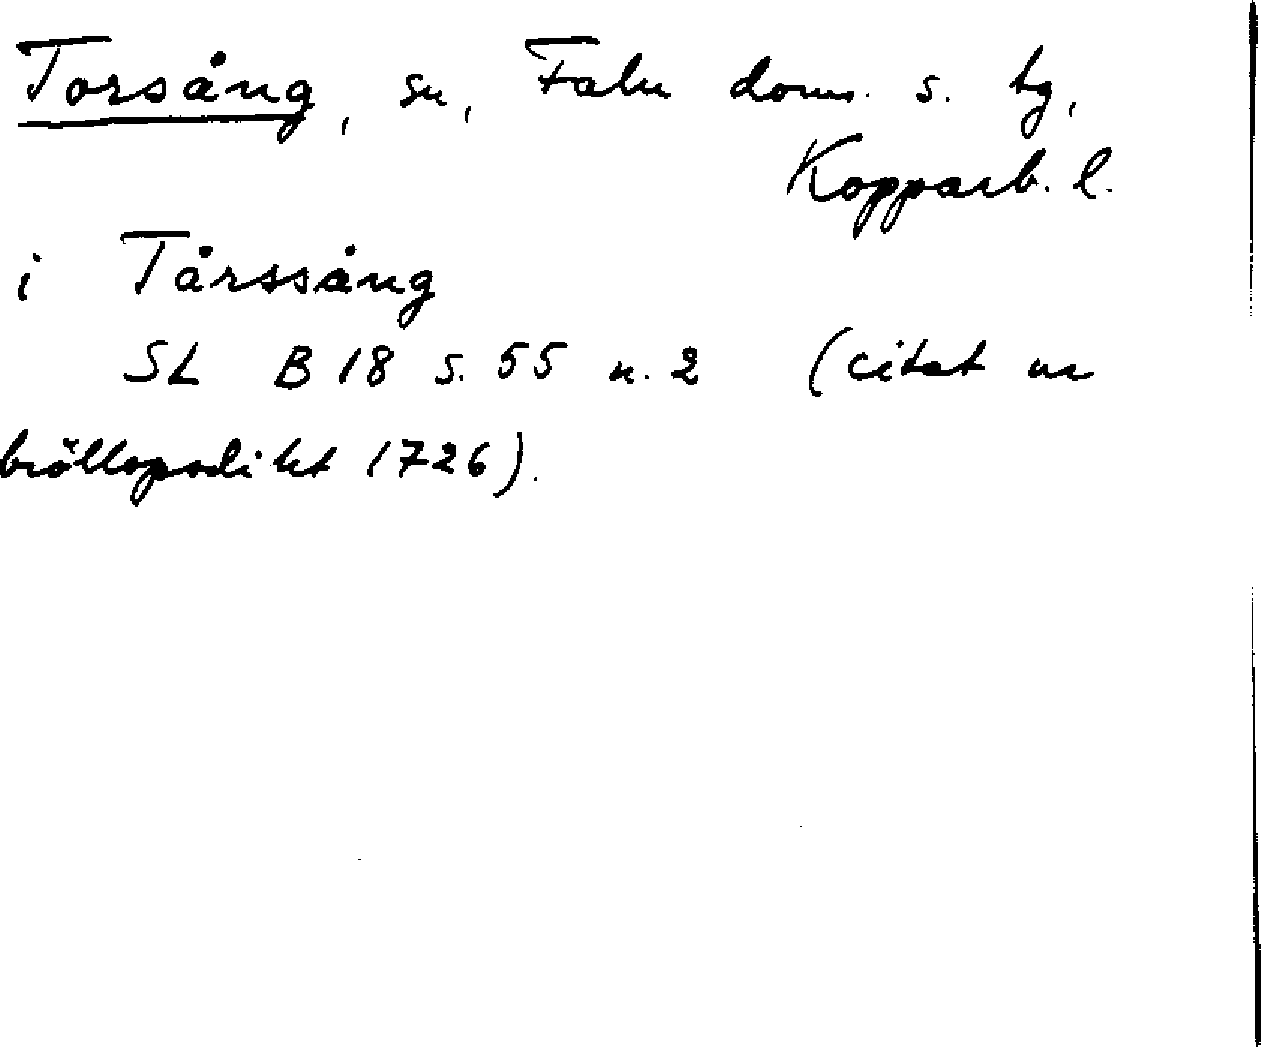 Torsång, sn, Falu doms. s. tg,
Kopparb. l.
i Tårssång
SL B 18 s. 55 n. 2 (citat ur
bröllopsdikt 1726).